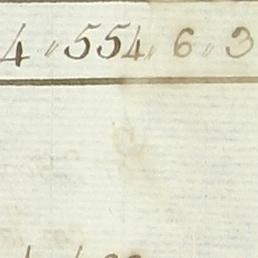 4 " 554 " 6 " 3